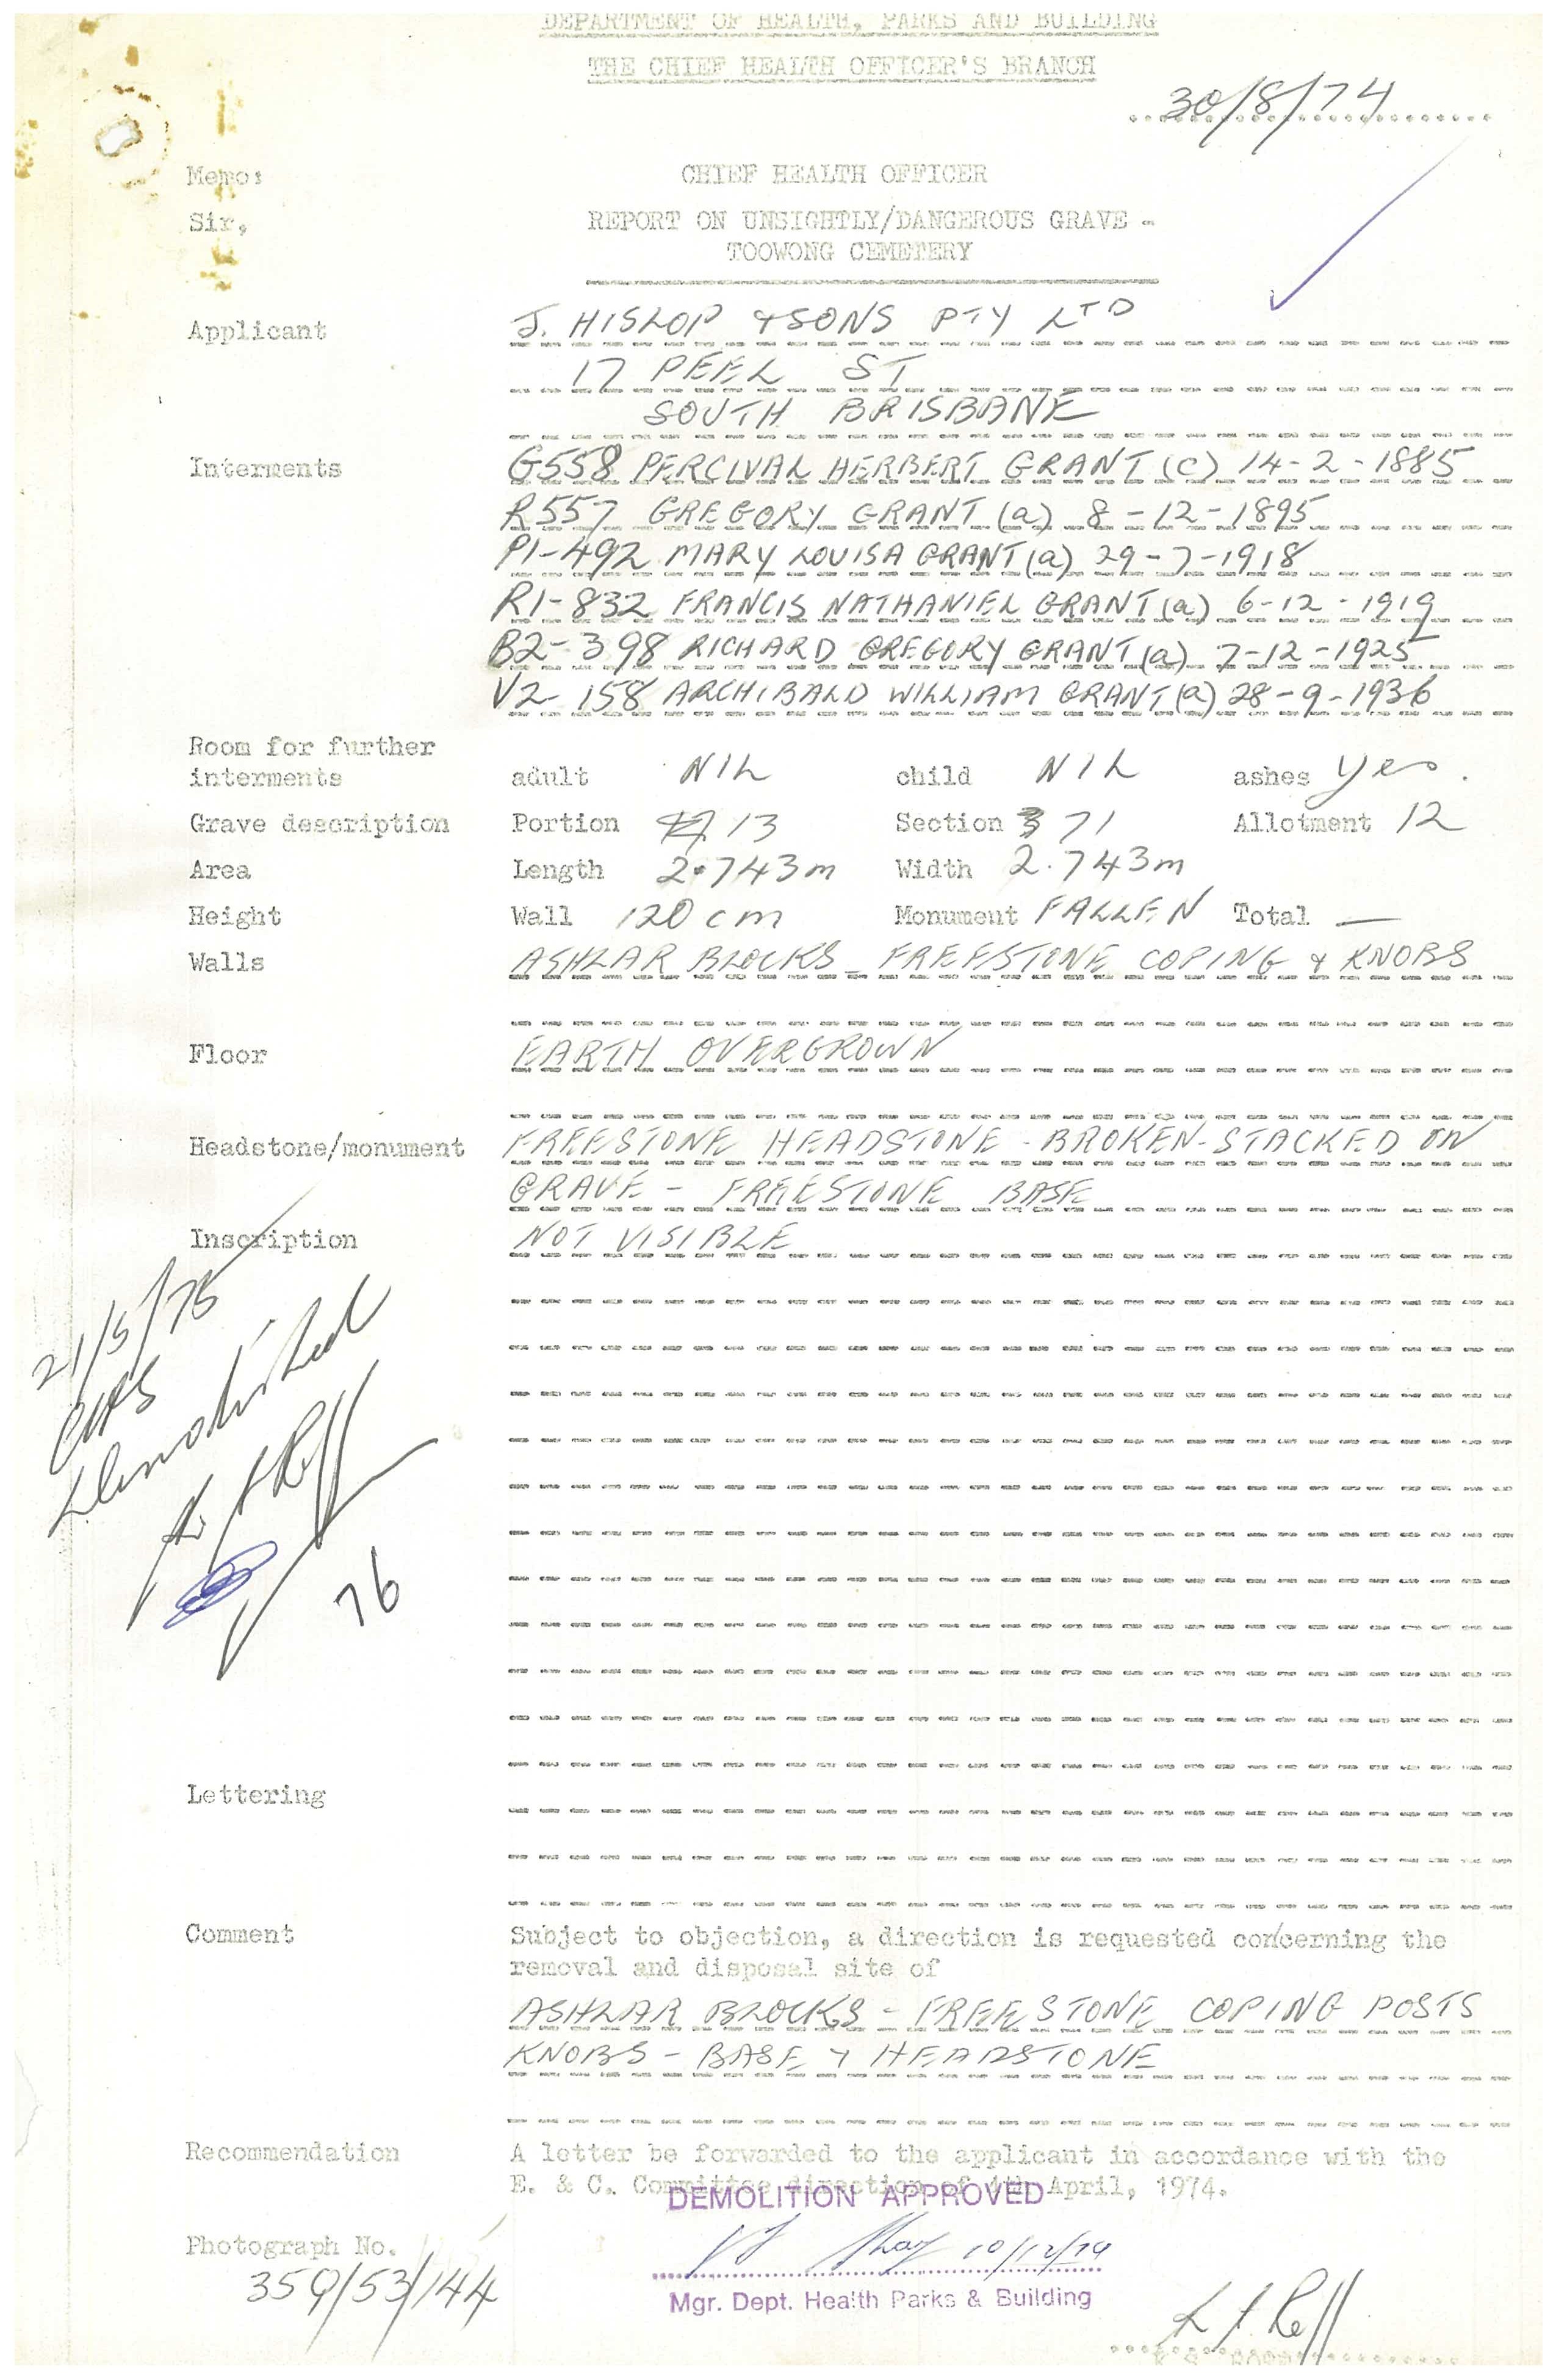 DEPARTMENT OF HEALTH, PARKS AND BUILDING
THE CHIEF HEALTH OFFICER'S BRANCH
30/8/74
Memo: CHIEF HEALTH OFFICER
Sir, REPORT ON UNSIGHTLY/DANGEROUS GRAVE -
TOOWONG CEMETERY
Applicant J. HISLOP & SONS PTY LTD
17 PEEL ST
SOUTH BRISBANE
Interments G558 PERCIVAL HERBERT GRANT (c) 14-2-1885
R557 GREGORY GRANT (a) 8-12-1895
P1-492 MARY LOUISA GRANT (a) 29-7-1918
R1-832 FRANCIS NATHANIEL GRANT (a) 6-12-1919
B2-398 RICHARD GREGORY GRANT (a) 7-12-1925
V2-158 ARCHIBALD WILLIAM GRANT (a) 28-9-1936
Room for further
interments adult NIL child NIL ashes yes.
Grave description Portion 13 Section 71 Allotment 12
Area Length 2.743m Width 2.743m
Height Wall 120 cm Monument FALLEN Total —
Walls ASHLAR BLOCKS - FREESTONE COPING & KNOBS
Floor EARTH OVERGROWN
Headstone/monument FREESTONE HEADSTONE - BROKEN - STACKED ON
GRAVE - FREESTONE BASE
Inscription NOT VISIBLE
21/5/75
demolished
76
Lettering
Comment Subject to objection, a direction is requested concerning the
removal and disposal site of
ASHLAR BLOCKS - FREESTONE COPING POSTS
KNOBS - BASE & HEADSTONE
Recommendation A letter be forwarded to the applicant in accordance with the
E. & C. Committee direction of 4th April, 1974.
DEMOLITION APPROVED
Photograph No. 10/12/74
359/53/144
Mgr. Dept. Health Parks & Building